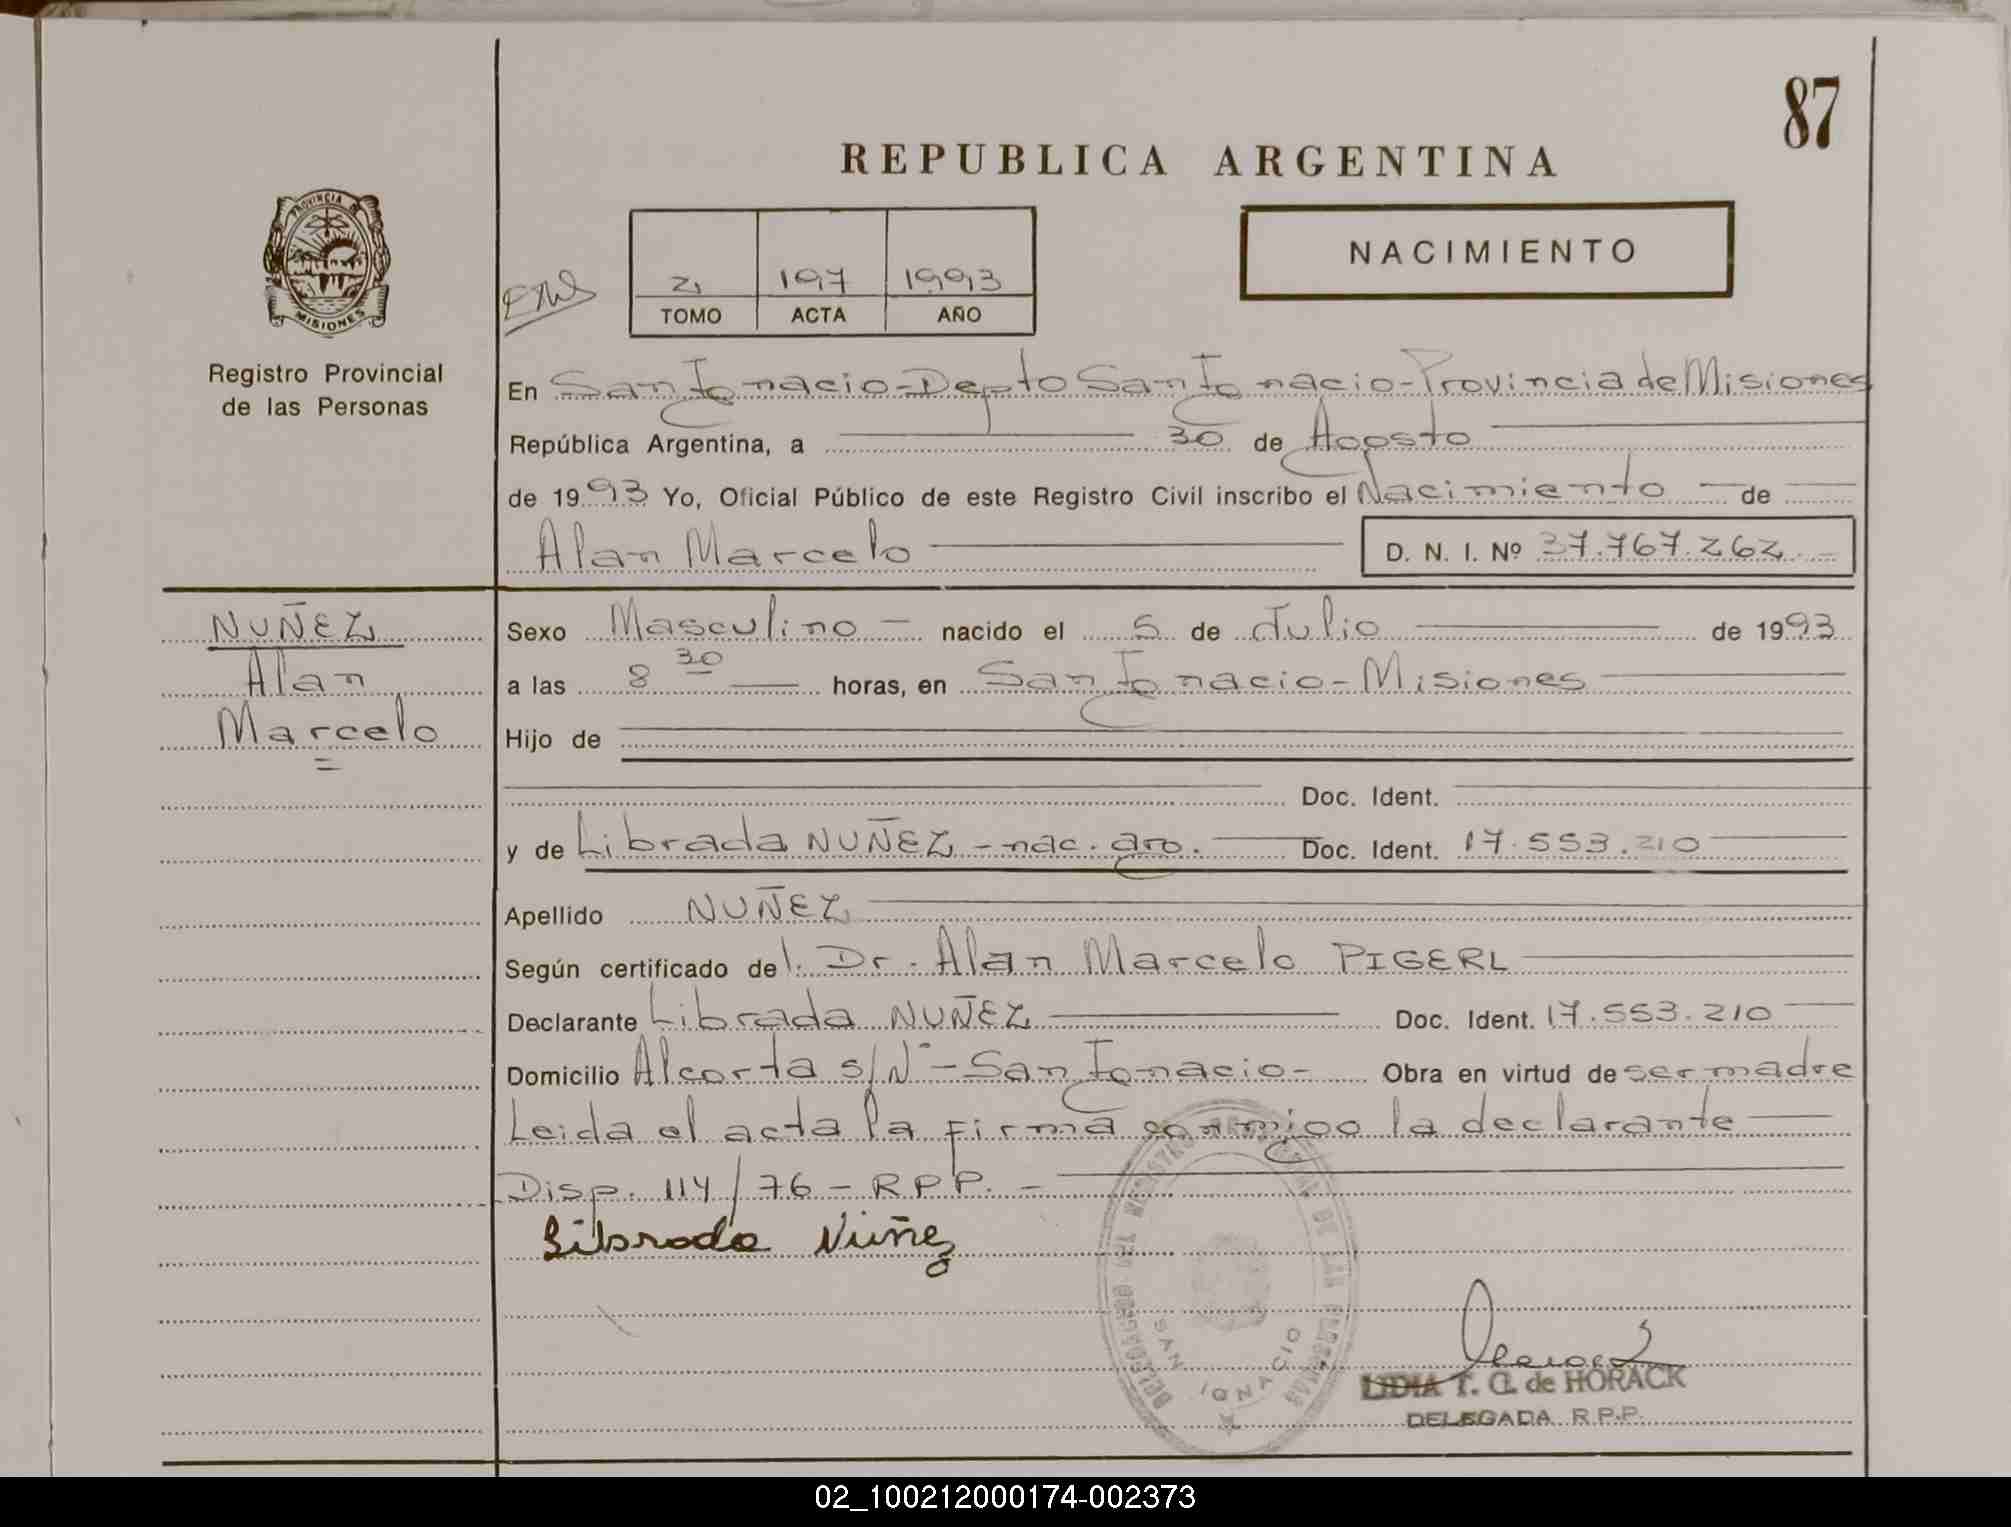 87
REPUBLICA ARGENTINA
PROVINCIA DE
MISIONES
Registro Provincial
de las Personas
2 197 1993
TOMO ACTA AÑO
NACIMIENTO
En San Ignacio-Depto San Ignacio-Provincia de Misiones
República Argentina, a 30 de Agosto
de 1993 Yo, Oficial Público de este Registro Civil inscribo el Nacimiento de
Alan Marcelo D. N. I. Nº 37.767.262
NUÑEZ
Alan
Marcelo
Sexo Masculino nacido el 5 de Julio de 1993
a las 8 30 horas, en San Ignacio-Misiones
Hijo de
Doc. Ident.
y de Librada NUÑEZ - nac. arg. Doc. Ident. 17.553.210
Apellido NUÑEZ
Según certificado del Dr. Alan Marcelo PIGERL
Declarante Librada NUÑEZ Doc. Ident. 17.553.210
Domicilio Alcorta s/Nº - San Ignacio- Obra en virtud de ser madre
Leida el acta la firma conmigo la declarante
Disp. 114/76 - R.P.P. -
Librada Nuñez
SAN IGNACIO
LIDIA T. G. de HORACK
DELEGADA R.P.P.
02_100212000174-002373